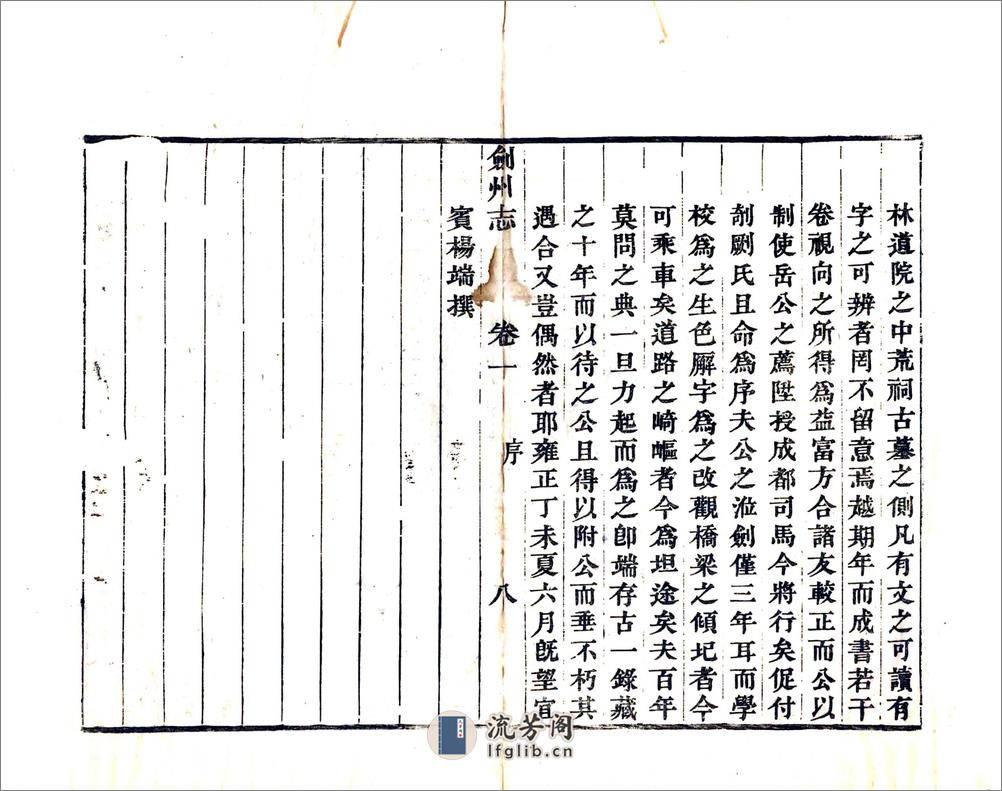 林道院之中荒祠古墓之側凡有文之可讀有
字之可辨者罔不留意焉越期年而成書若干
卷視向之所得爲益富方合諸友較正而公以
制使岳公之薦陞授成都司馬今將行矣促付
剞劂氏且命爲序夫公之涖劍僅三年耳而學
校爲之生色廨宇爲之改觀橋梁之傾圮者今
可乘車矣道路之崎嶇者今爲坦途矣夫百年
莫問之典一旦力起而爲之卽端存古一錄藏
之十年而以待之公且得以附公而垂不朽其
遇合又豈偶然者耶雍正丁未夏六月旣望宜
賓楊端撰
劍州志 卷一 序 八
流芳阁
lfglib.cn